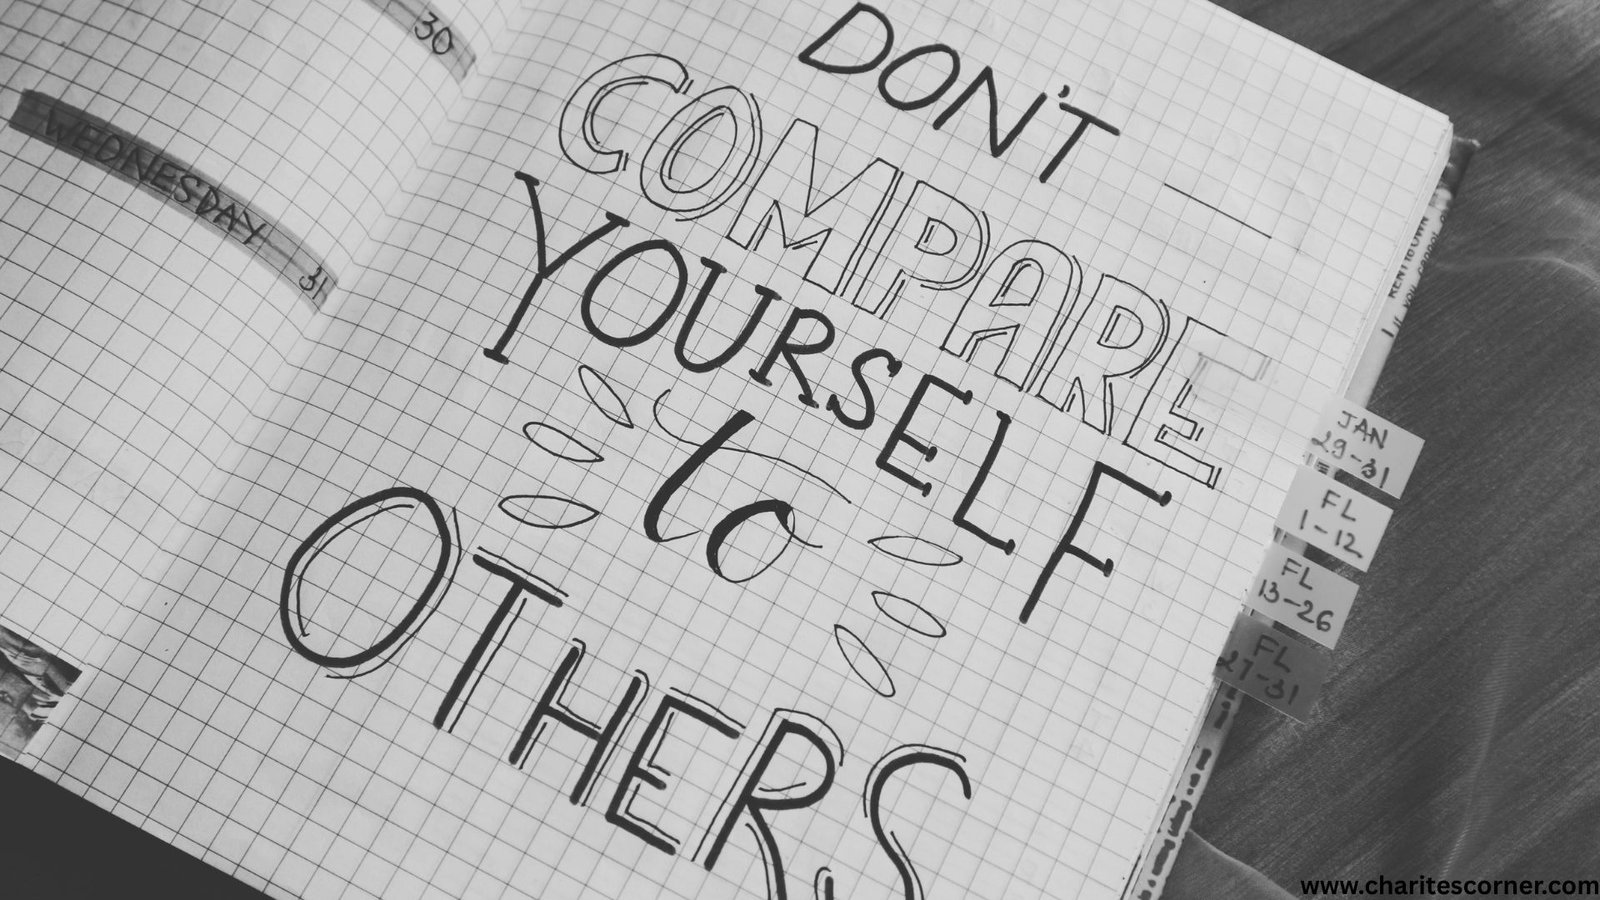 30
WEDNESDAY
31
DON'T
COMPARE
YOURSELF
to
OTHERS
JAN
29-31
FL
1-12
FL
13-26
FL
27-31
www.charitescorner.com